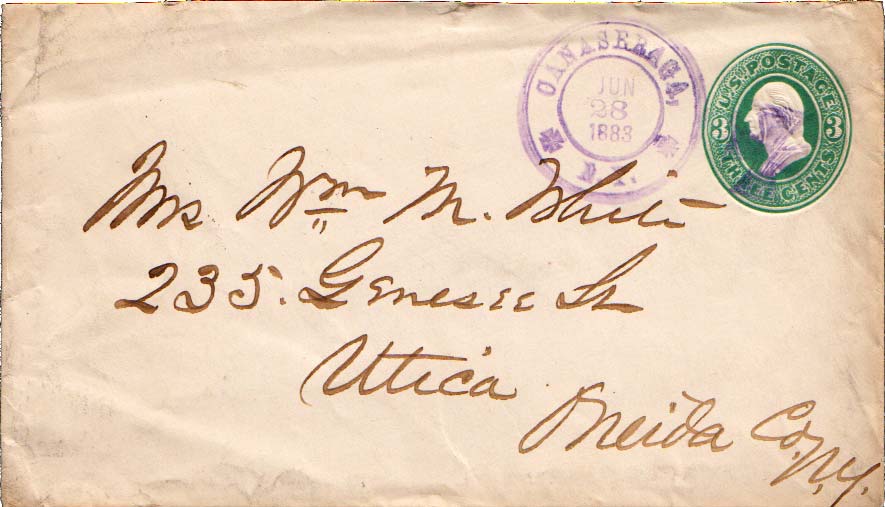 CANASERAGA,
JUN
28
1883
N. Y.
U.S. POSTAGE
3 3
THREE CENTS
Mrs Wm M. White
235. Genesee St
Utica
Oneida Co. N.Y.